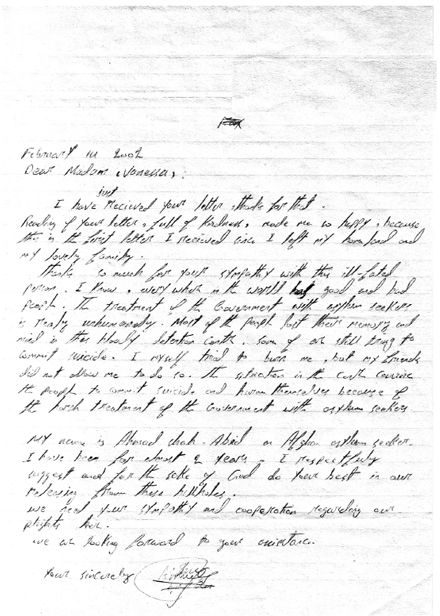 February 2002
Dear Madam, Vanessa,
just
I have Recieved your letter, thanks for that.
Reading of your letter, full of Kindness, made me so happy, because
this is the first letter I recieved since I left my homeland and
my lovely family.
thanks so much for your sympathy with this ill-fated
person. I know, every where in the world good and bad
people. The treatment of the Government with asylum seekers
is really unhumanly. Most of the people lost their memory and
mind in this bloody detention Centre. some of are still trying to
commit suicide. I myself tried to burn me, but my friends
did not allow me to do so. The situation in the
the people to commit suicide and harm themselves because of
the harsh treatment of the Government with asylum seekers.
My name is Ahmad shah. Abid an Afghan asylum seeker.
I have been for almost 2 years. I respectfuly
suggest and for the sake of God do your best in our
releasing from these hellholes.
we need your sympathy and cooperation regarding our
plights here.
we are looking forward to your assistance.
Your sincerely